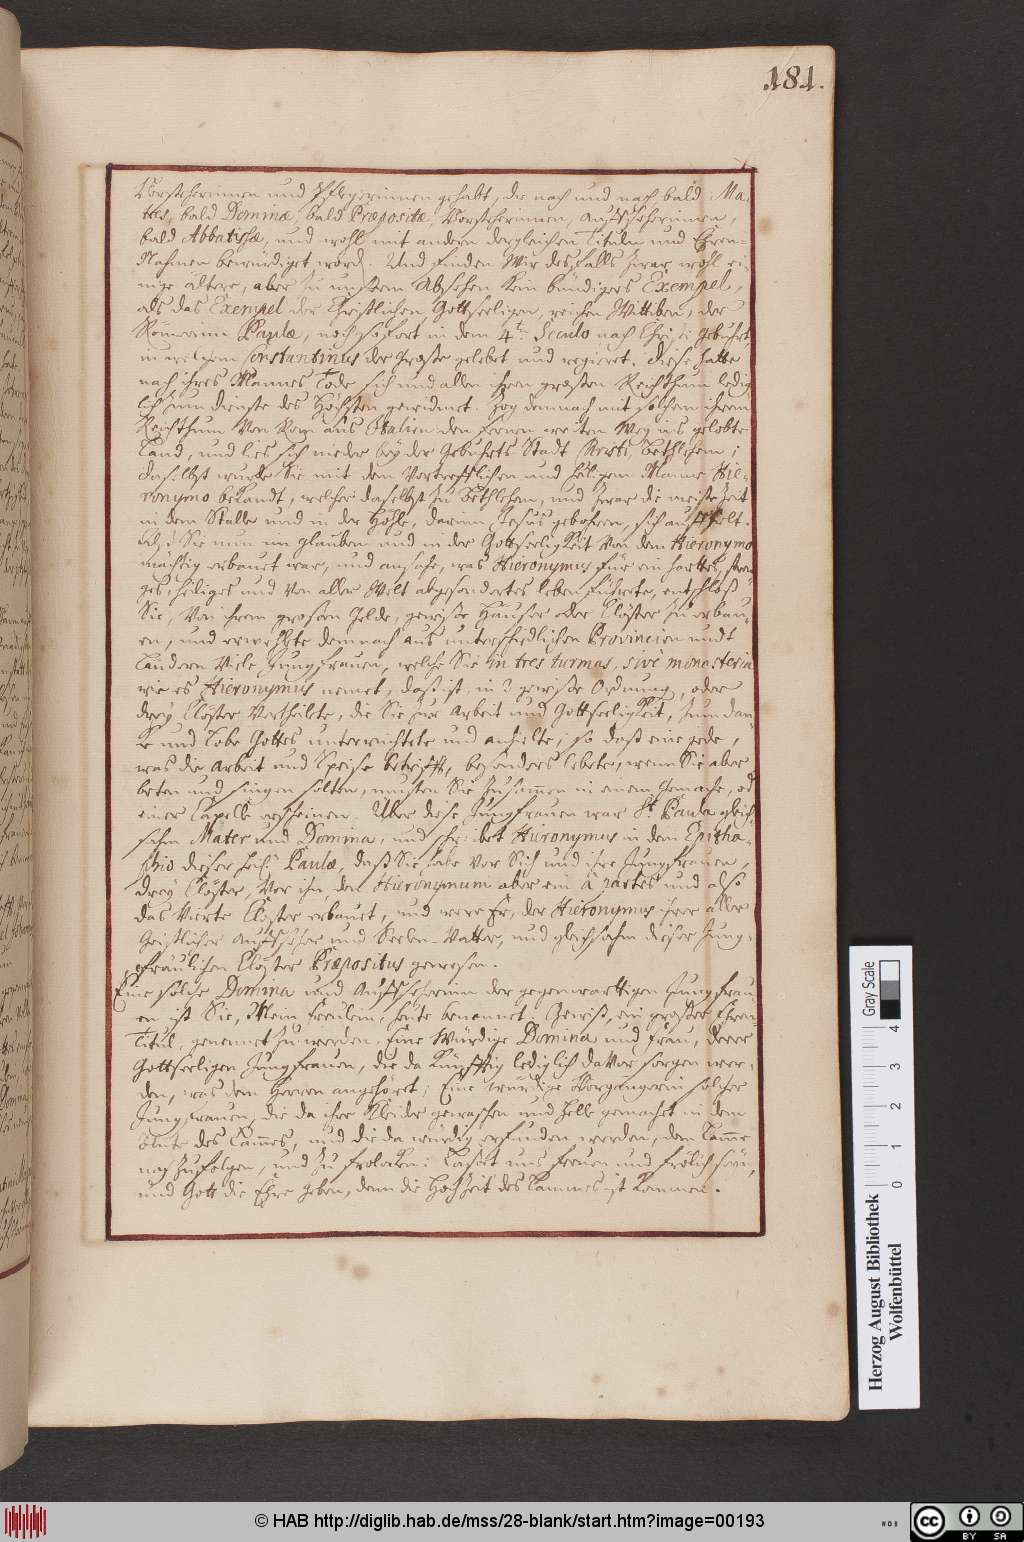 181.
Vorsteherinnen und Pflegerinnen gehabt, die nach und nach bald Ma-
tres, bald Dominæ, bald Præpositæ, Vorsteherinnen, Auffseherinnen,
bald Abbatissæ, und wohl mit andern dergleichen Tituln und Ehren-
Nahmen bewürdiget word. Und finden Wir desfalls zwar wohl ei-
nige ältere, aber zu unserm Absehen kein bündigers Exempel,
als das Exempel der Christlichen Gottseeligen, reichen Wittben, der
Römerinn Paulæ, noch sofort in dem 4ten Seculo nach Christi gebuhrt,
in welchem Constantinus der Große gelebet und regieret. Diese hatte
nach ihres Mannes Tode sich und allen ihren großen Reichthum ledig-
lich zum dienste des Höchsten gewidmet. Zog demnach mit solchem ihrem
Reichthum von Rom aus Italien den fernen weiten Weg ins gelobte
Land, und lies sich nieder bey der Gebuhrts Stadt Christi, Bethlehem;
daselbst wurde Sie mit dem Vortrefflichen und heiligen Manne Hie-
ronymo bekandt, welcher daselbst zu Bethlehem, und zwar die meiste Zeit
in dem Stalle und in der Höhle, darinn Jesus gebohren, sich auffhielt.
Als Sie nun im glauben und in der Gottseeligkeit von dem Hieronymo
mächtig erbauet war, und ansahe, was Hieronymus für ein hartes, stren-
ges, heiliges und von aller Welt abgesondertes leben führete, entschloß
Sie, von ihrem großen Gelde, gewiße Häuser oder Clöster zu erbau-
en, und erwehlte demnach aus unterschiedlichen Provincien undt
Ländern viele Jungfrauen, welche Sie in tres turmas, sive monasteria
wie es Hieronymus nennet, das ist, in 3 gewiße Ordnung, oder
drey Clöster vertheilete, die Sie zur Arbeit und Gottseeligkeit, zum dan-
ke und Lobe Gottes unterrichtete und anhielte; so daß eine jede,
was die Arbeit und Speise betrifft, besonders lebete, wenn Sie aber
beten und singen solten, musten Sie zusammen in einem Gemache, od
einer Capelle erscheinen. Über diese Jungfrauen war St. Paula gleich-
sahm Mater und Domina, und schreibet Hieronymus in dem Epitha-
phio dieser heil. Paulæ, daß Sie habe vor Sich und ihre Jungfrauen,
drey Clöster, vor ihn den Hieronymum aber ein à partes und also
das Vierte Closter erbauet, und were Er, der Hieronymus ihrer aller
Geistlicher Auffseher und Seelen-Vatter, und gleichsahm dieser Jung-
fräulichen Clöster Præpositus gewesen.
Eine solche Domina und Auffseherinn der gegenwärtigen Jungfrau-
en ist Sie, Mein Freulein, heute benennet. Gewiß, ein großer Ehren-
Titul, genennet zu werden. Eine Würdige Domina und Frau, derer
Gottseeligen Jungfrauen, die da künfftig lediglich davor sorgen wer-
den, was dem Herren angehöret; Eine würdige Vorgängerin solcher
Jungfrauen, die da ihre Kleider gewaschen und helle gemachet in dem
Blute des Lammes, und die da würdig erfunden werden, dem Lamme
nachzufolgen, und zu frolocken: Lasset uns freuen und frölich seyn,
und Gott die Ehre geben, denn die Hochzeit des Lammes ist kommen.
Gray Scale
0 1 2 3 4
Herzog August Bibliothek
Wolfenbüttel
© HAB http://diglib.hab.de/mss/28-blank/start.htm?image=00193
WDB
CC BY SA